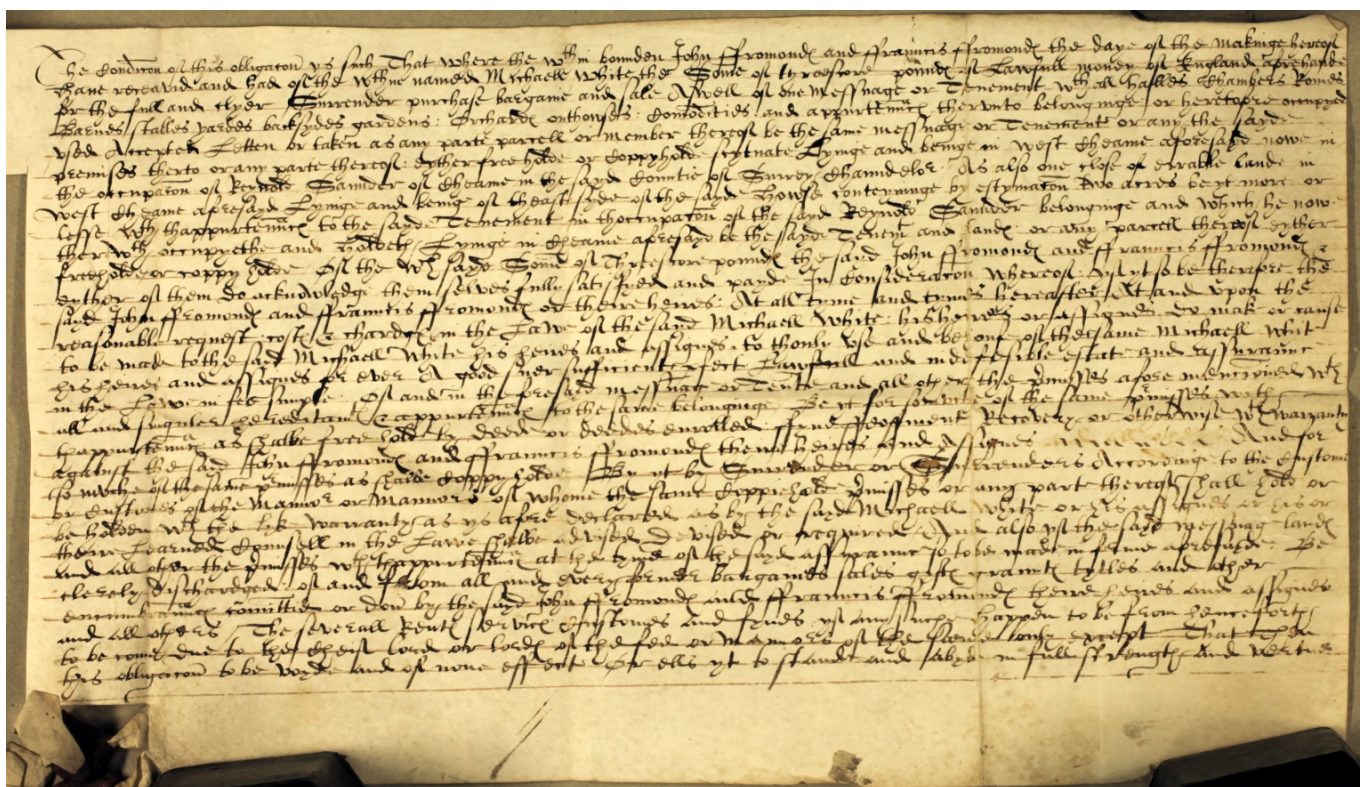 The Condicon of this obligacon ys such That where the wthin bounden John ffromond and ffrauncis ffromond the daye of the makinge hereof
have receavid and had of the wthin named Michaell White the Some of thyrescore pound of Lawfull money of England aforehande
for the full and clyer Surrender purchase bargaine and sale Aswell of one messuage or Tenement wth all halles Chambers Romes
Barnes stalles yardes backsydes gardens Orchard outhowses Comodities and appurtennc therunto belonginge or heretofore occupyed
vsed Accepted Letten or taken as any parte parcell or member thereof be the same messuage or Tenement or any the sayde
premises therto or any parte thereof eyther free holde or Coppyholde scytuate Lyinge and beinge in West Cheame aforesayd nowe in
the occupacon of Reynold Saunder of Cheame in the sayd Countie of Surrey As also one close of errable lande in
West Cheame aforesayd Lyinge and beinge of theast syde of the sayd howse conteyninge by estymacon two acres be yt more or
lesse wth thappurtennc to the sayde Tenement in thoccupacon of the sayd Reynold Saunder belonginge and which he nowe
therwth occupyethe and holdeth Lyinge in Cheame aforesayd be the sayde Tenemt and land or any parcell thereof eyther
freeholde or coppy holde Of the wch sayd Some of Threescore pound the said John ffromond and ffrauncis ffromond &
eyther of them do acknowledge them selves fully satisfyed and payde In Consideracon whereof Yf yt so be therfore the
sayd John ffromond and ffrauncis ffromond or theire heires At all tyme and tymes hereafter At and vpon the
reasonable request cost & chardge in the Lawe of the said Michaell White his heires or assignes do mak or cause
to be made to the said Michaell White his heires and assignes to thonly vse and behouf of the same Michaell Whit
his heires and assignes for ever A good suer sufficient pfect Lawfull and indefesible estat and assuraunc
in the Lawe in fee simple Of and in the foresaid messuage or Tente and all other the pmisses afore mencioned wth
all and singuler hereditam & appurtennc to the same belonginge Be it for somuche of the same pmisses with
thappurtennc as shalbe free hold by deed or deedes enrolled ffyne ffeoffment Recovery or otherwise wth warrantie
against the said John ffromond and ffrauncis ffromond their heires and Assignes And for
so muche of the same pmisses as shalbe Coppy holde By yt by Surrender or Surrenders According to the Custome
or Customes of the Mannor or Mannors of whome the same Coppieholde pmisses or any part thereof shall hold or
be holden wth the lik warranty as ys afore declared as by the sayd Michaell White or his assignes or his or
theire Learned Counsell in the Lawe shalbe advised devised or required And also yf the sayd messuag land
and all other the pmisses wth thappurtennc at the tyme of the sayd assuraunc so to be made in forme aforesayde Be
clerely dischardged of and from all and every former bargaines sales gyft graunt tytles and other
encumbraunc comitted or don by the sayd John ffromond and ffrauncis ffromond theire heires and assignes
and all others The severall Rent servic Customes and fynes yf any suche happen to be from henceforth
to be come due to the cheif lord or lord of the fee or Mannors of the same only except That Then
this obligacon to be voyde and of none effect Or ells yt to stande and abyde in full strength and vertue